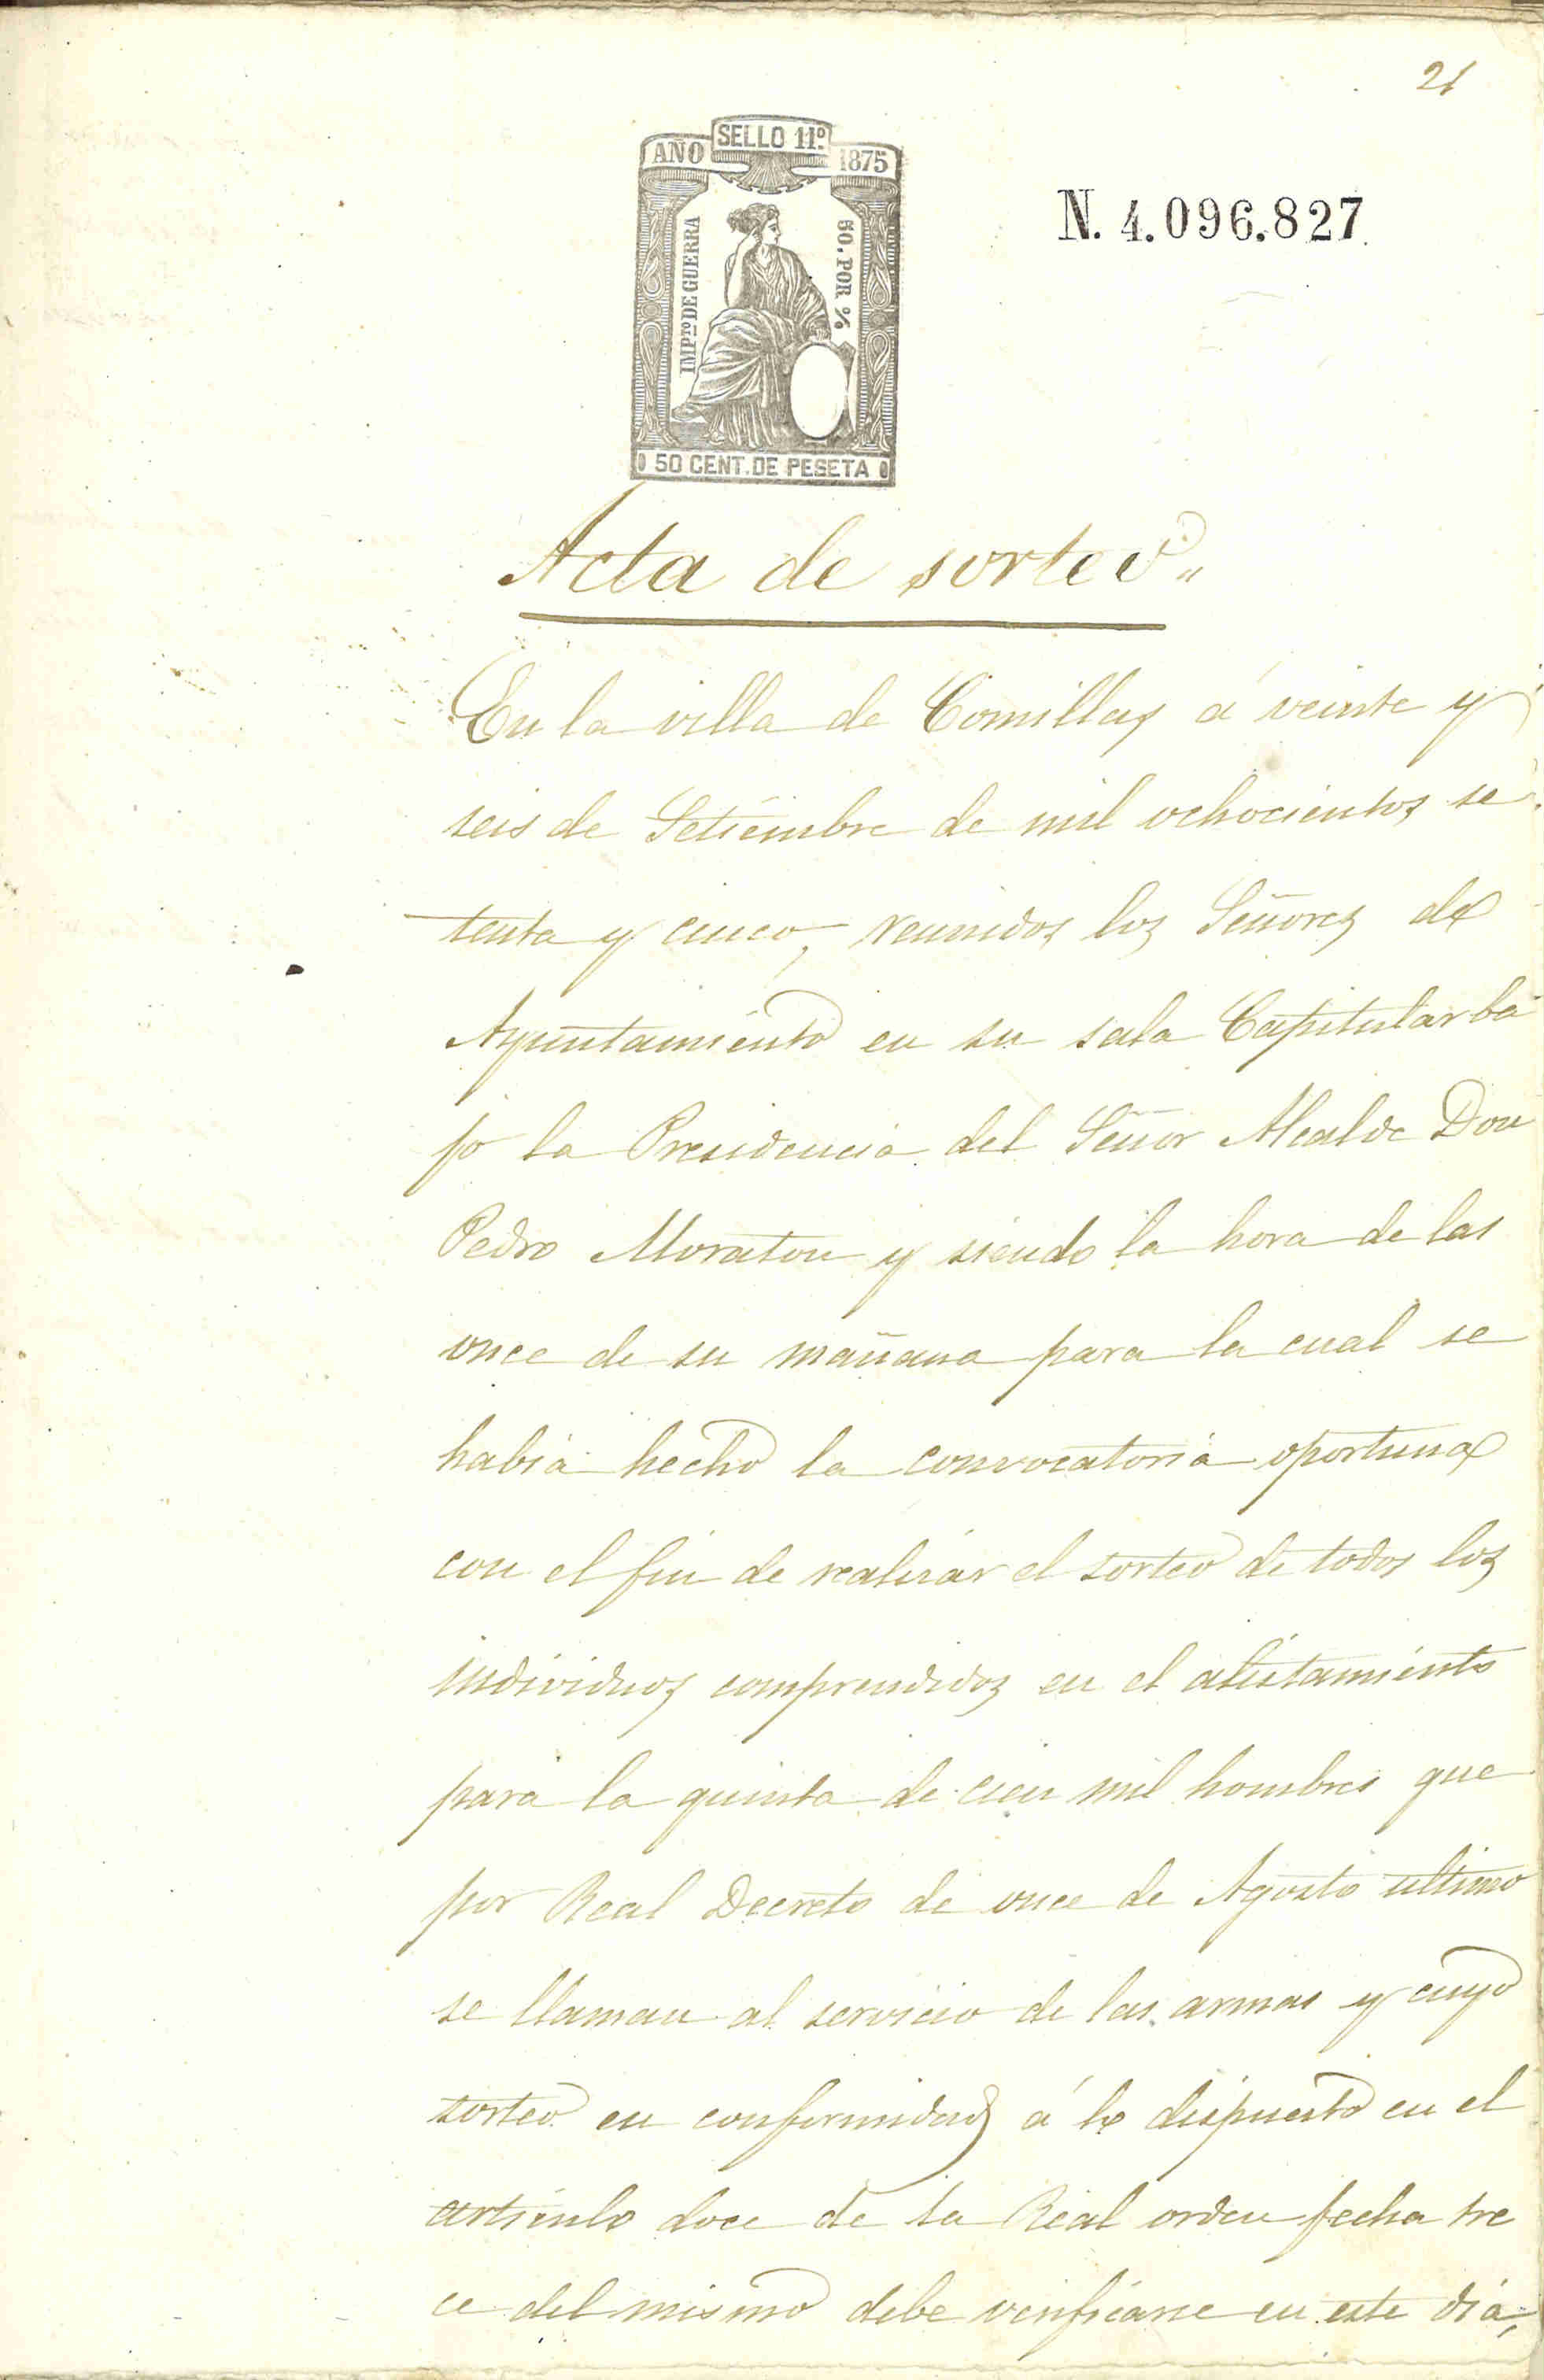 21
AÑO SELLO 11º 1875
IMPTO DE GUERRA
50. POR %
N. 4.096.827
50 CENT. DE PESETA
Acta de sorteo"
En la villa de Comillas á veinte y
seis de Setiembre de mil ochocientos se
tenta y cinco, reunidos los Señores de
Ayuntamiento en su sala Capitular ba
jo la Presidencia del Señor Alcalde Don
Pedro Moraton y siendo la hora de las
once de su mañana para la cual se
habia hecho la convocatoria oportuna
con el fin de realizar el sorteo de todos los
individuos comprendidos en el alistamiento
para la quinta de cien mil hombres que
por Real Decreto de once de Agosto ultimo
se llaman al servicio de las armas y cuyo
sorteo en conformidad á lo dispuesto en el
articulo doce de la Real orden fecha tre
ce del mismo debe verificarse en este dia,